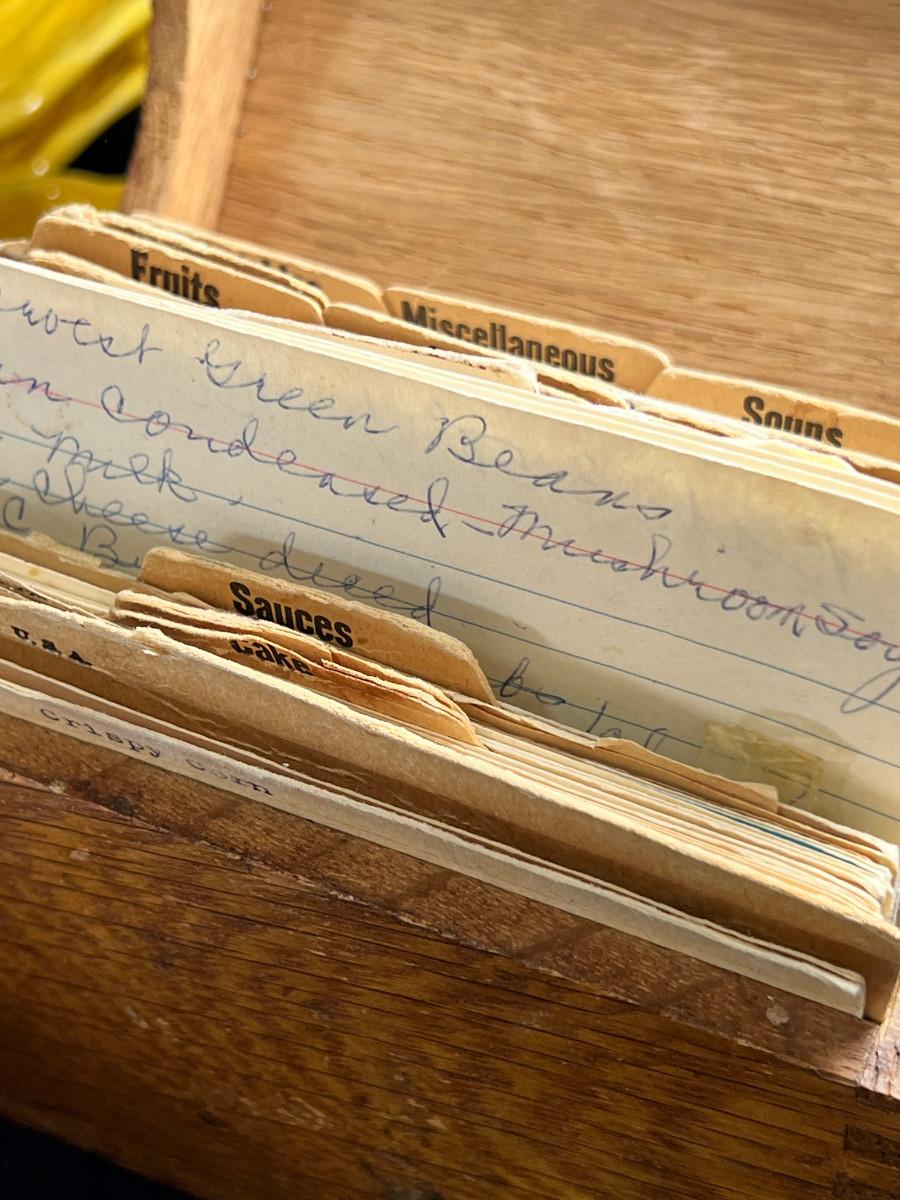 Fruits
Miscellaneous
Soups
Green Beans
condensed mushroom
milk
cheese diced
C
Sauces
Cake
U.S.A.
crispy corn